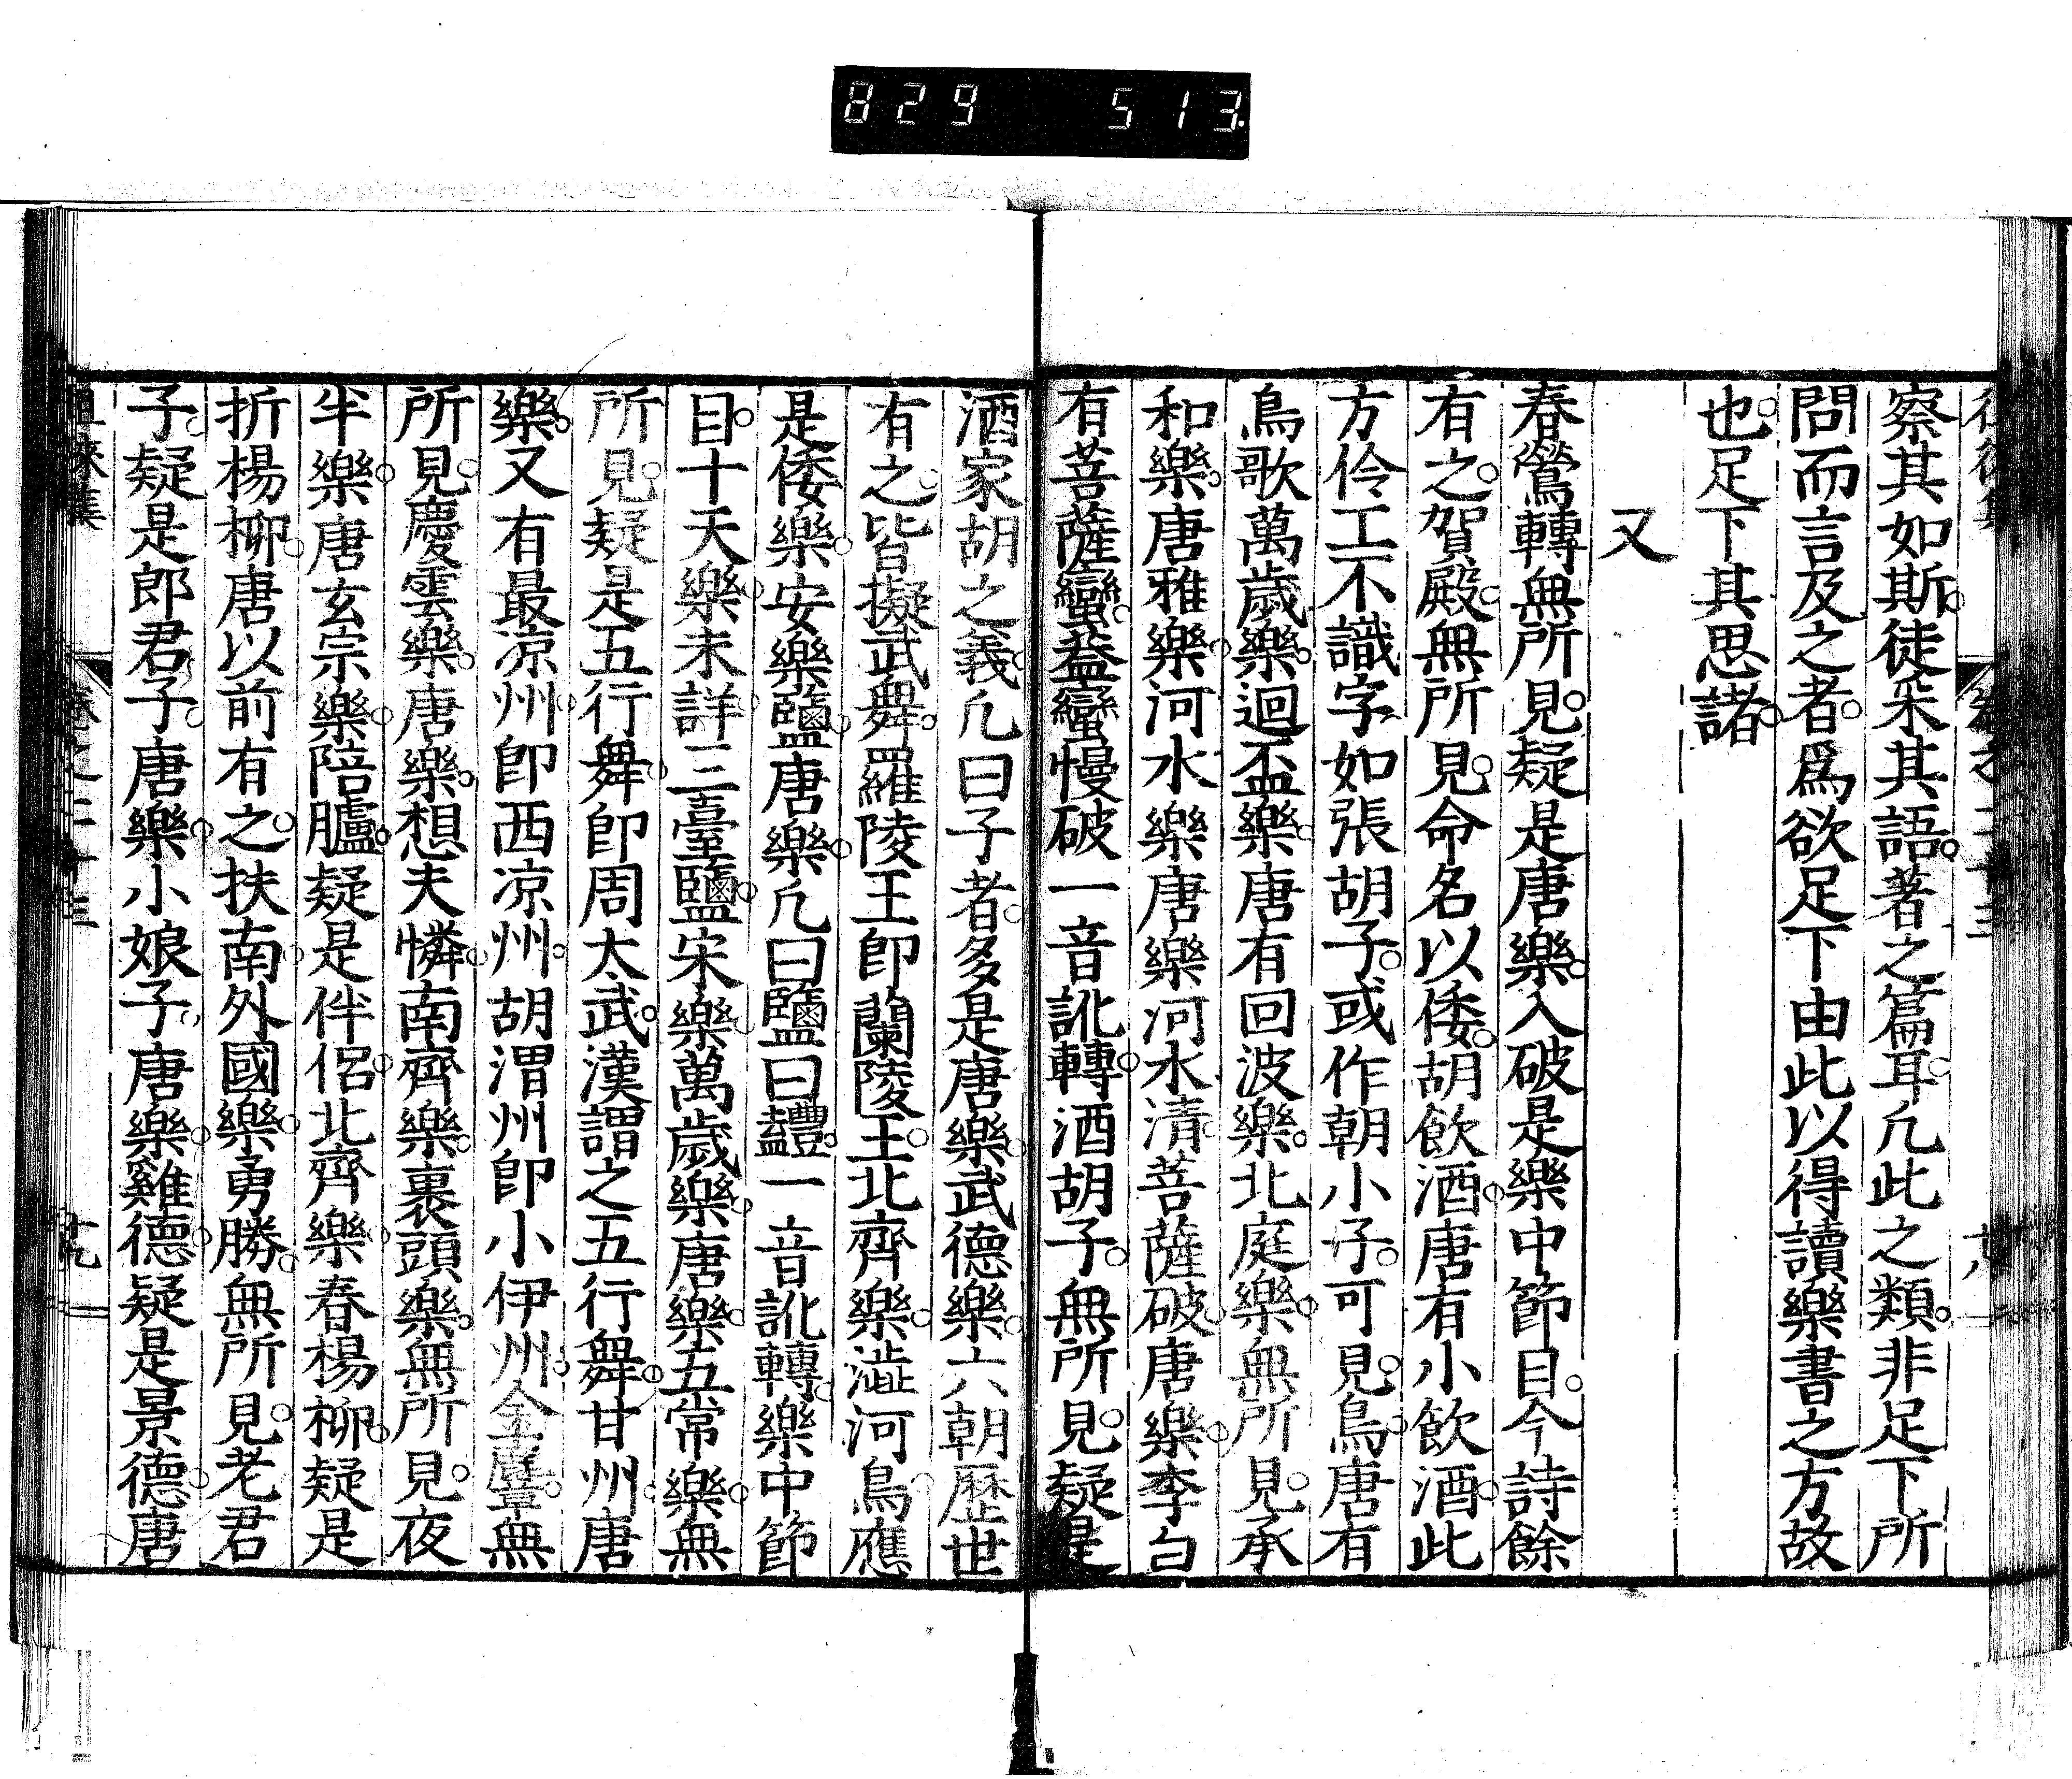 829 513
察其如斯。徒采其語。著之篇耳。凡此之類。非足下所
問而言及之者。爲欲足下由此以得讀樂書之方故
也。足下其思諸。
又
春鶯轉無所見。疑是唐樂。入破是樂中節目。今詩餘
有之。賀殿。無所見。命名以倭。胡飲酒。唐有小飲酒。此
方伶工不識字。如張胡子。或作朝小子。可見。鳥。唐有
鳥歌萬歲樂。迴盃樂。唐有回波樂。北庭樂。無所見。承
和樂。唐雅樂。河水樂。唐樂河水清。菩薩破。唐樂。李白
有菩薩蠻。蓋蠻慢破一音訛轉。酒胡子。無所見。疑是
酒家胡之義。凡曰子者。多是唐樂。武德樂。六朝歷世
有之。皆擬武舞。羅陵王卽蘭陵王。北齊樂。澁河鳥應
是倭樂。安樂鹽。唐樂。凡曰鹽曰豔。一音訛轉。樂中節
目。十天樂。未詳。三臺鹽。宋樂。萬歲樂。唐樂。五常樂。無
所見。疑是五行舞。卽周大武。漢謂之五行舞。甘州。唐
樂。又有最涼州。卽西涼州。胡渭州卽小伊州。全臺。無
所見。慶雲樂。唐樂。想夫憐。南齊樂。裹頭樂。無所見。夜
半樂。唐玄宗樂。陪臚。疑是伴侶。北齊樂。春楊柳。疑是
折楊柳。唐以前有之。扶南。外國樂。勇勝。無所見。老君
子。疑是郎君子。唐樂。小娘子。唐樂。雞德。疑是景德。唐